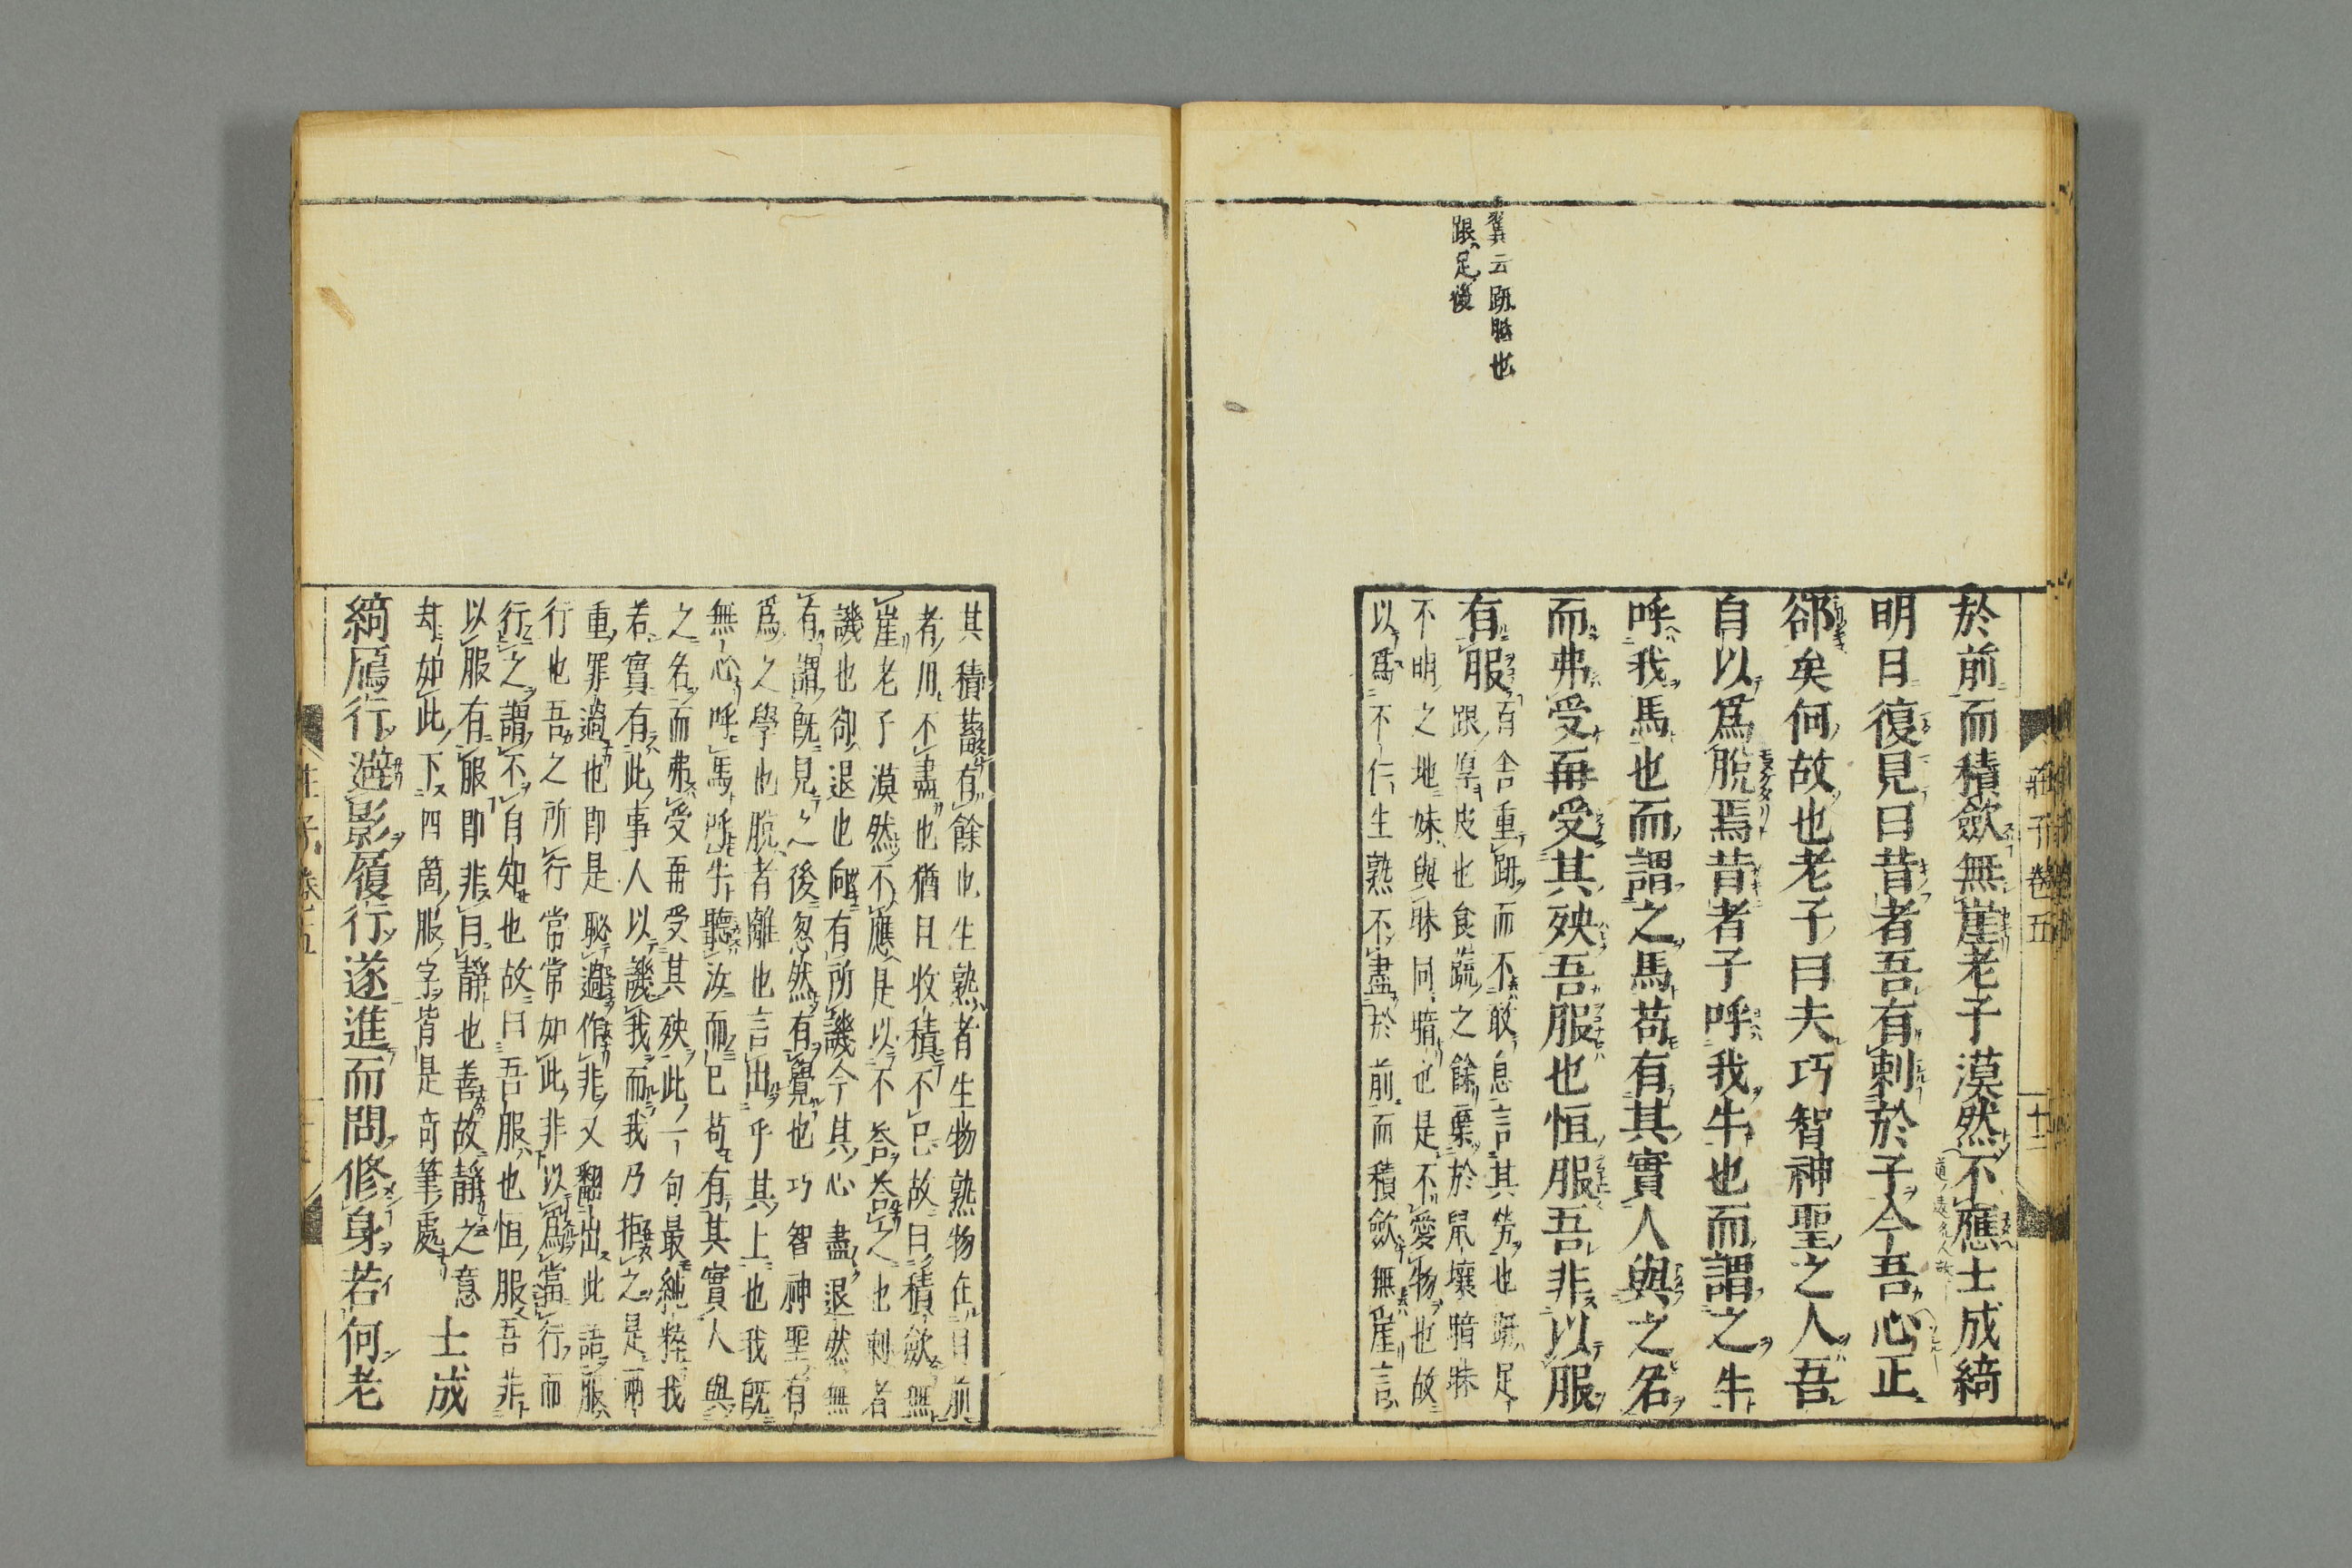 莊子卷五
十二
翼云趼胝也
跟足後
於前而積歛無崖老子漠然不應士成綺
明日復見曰昔者吾有刺於子今吾心正
郤矣何故也老子曰夫巧智神聖之人吾
自以爲脫焉昔者子呼我牛也而謂之牛
呼我馬也而謂之馬苟有其實人與之名
而弗受再受其殃吾服也恒服吾非以服
有服
百舍重趼而不敢息言其勞也趼足
跟厚皮也食蔬之餘棄於鼠壤暗昧
不明之地妹與昧同暗也是不愛物也故
以爲不仁生熟不盡於前而積歛無崖言
其積蓄有餘也生熟者生物熟物在目前
者用不盡也猶且收積不已故曰積歛無
崖老子漠然不應是以不答答之也刺者
譏也郤退也向有所譏今其心盡退然無
有謂旣見之後忽然有覺也巧智神聖有
爲之學也脫者離也言出乎其上也我旣
無心呼馬呼牛聽汝而已苟有其實人與
之名而弗受再受其殃此一句最純粹我
若實有此事人以譏我而我乃拒之是兩
重罪過也即是恥過作非又翻出此語服
行也吾之所行常常如此非以爲當行而
行之謂不自知也故曰吾服也恒服吾非
以服有服即非自靜也善故靜之意
却如此下四箇服字皆是奇筆處
士成
綺鴈行避影履行遂進而問修身若何老